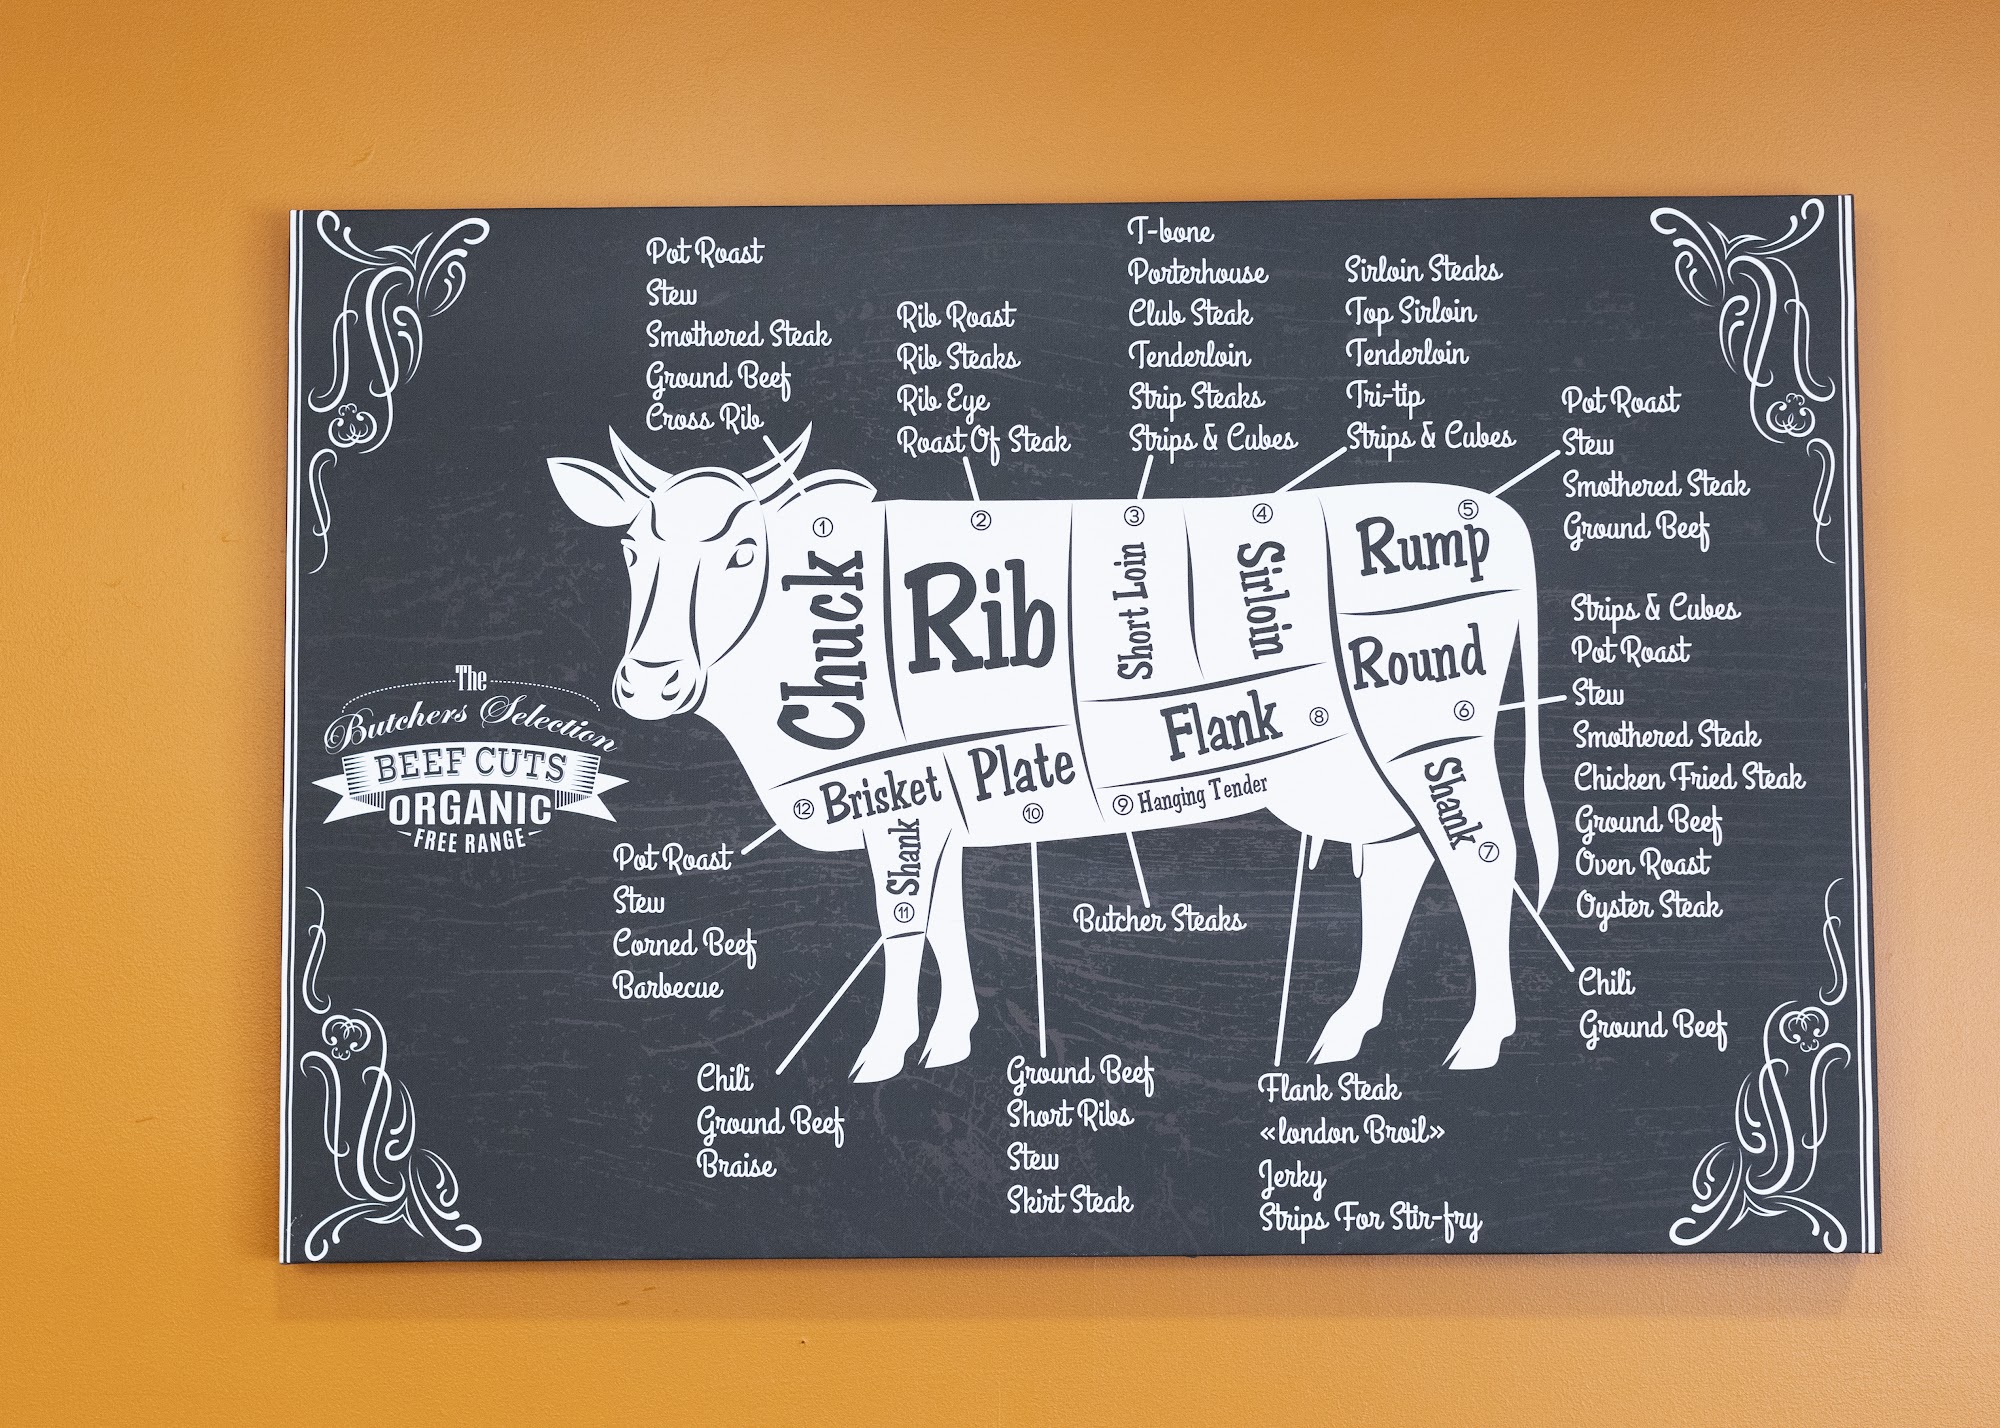 Pot Roast
Stew
Smothered Steak
Ground Beef
Cross Rib
Rib Roast
Rib Steaks
Rib Eye
Roast Of Steak
T-bone
Porterhouse
Club Steak
Tenderloin
Strip Steaks
Strips & Cubes
Sirloin Steaks
Top Sirloin
Tenderloin
Tri-tip
Strips & Cubes
Pot Roast
Stew
Smothered Steak
Ground Beef
1
Chuck
2
Rib
3
Short Loin
4
Sirloin
5
Rump
Round
6
Flank 8
9 Hanging Tender
Plate
10
12 Brisket
Shank
11
Shank
7
Strips & Cubes
Pot Roast
Stew
Smothered Steak
Chicken Fried Steak
Ground Beef
Oven Roast
Oyster Steak
The
Butchers Selection
BEEF CUTS
ORGANIC
FREE RANGE
Pot Roast
Stew
Corned Beef
Barbecue
Butcher Steaks
Chili
Ground Beef
Chili
Ground Beef
Braise
Ground Beef
Short Ribs
Stew
Skirt Steak
Flank Steak
«london Broil»
Jerky
Strips For Stir-fry